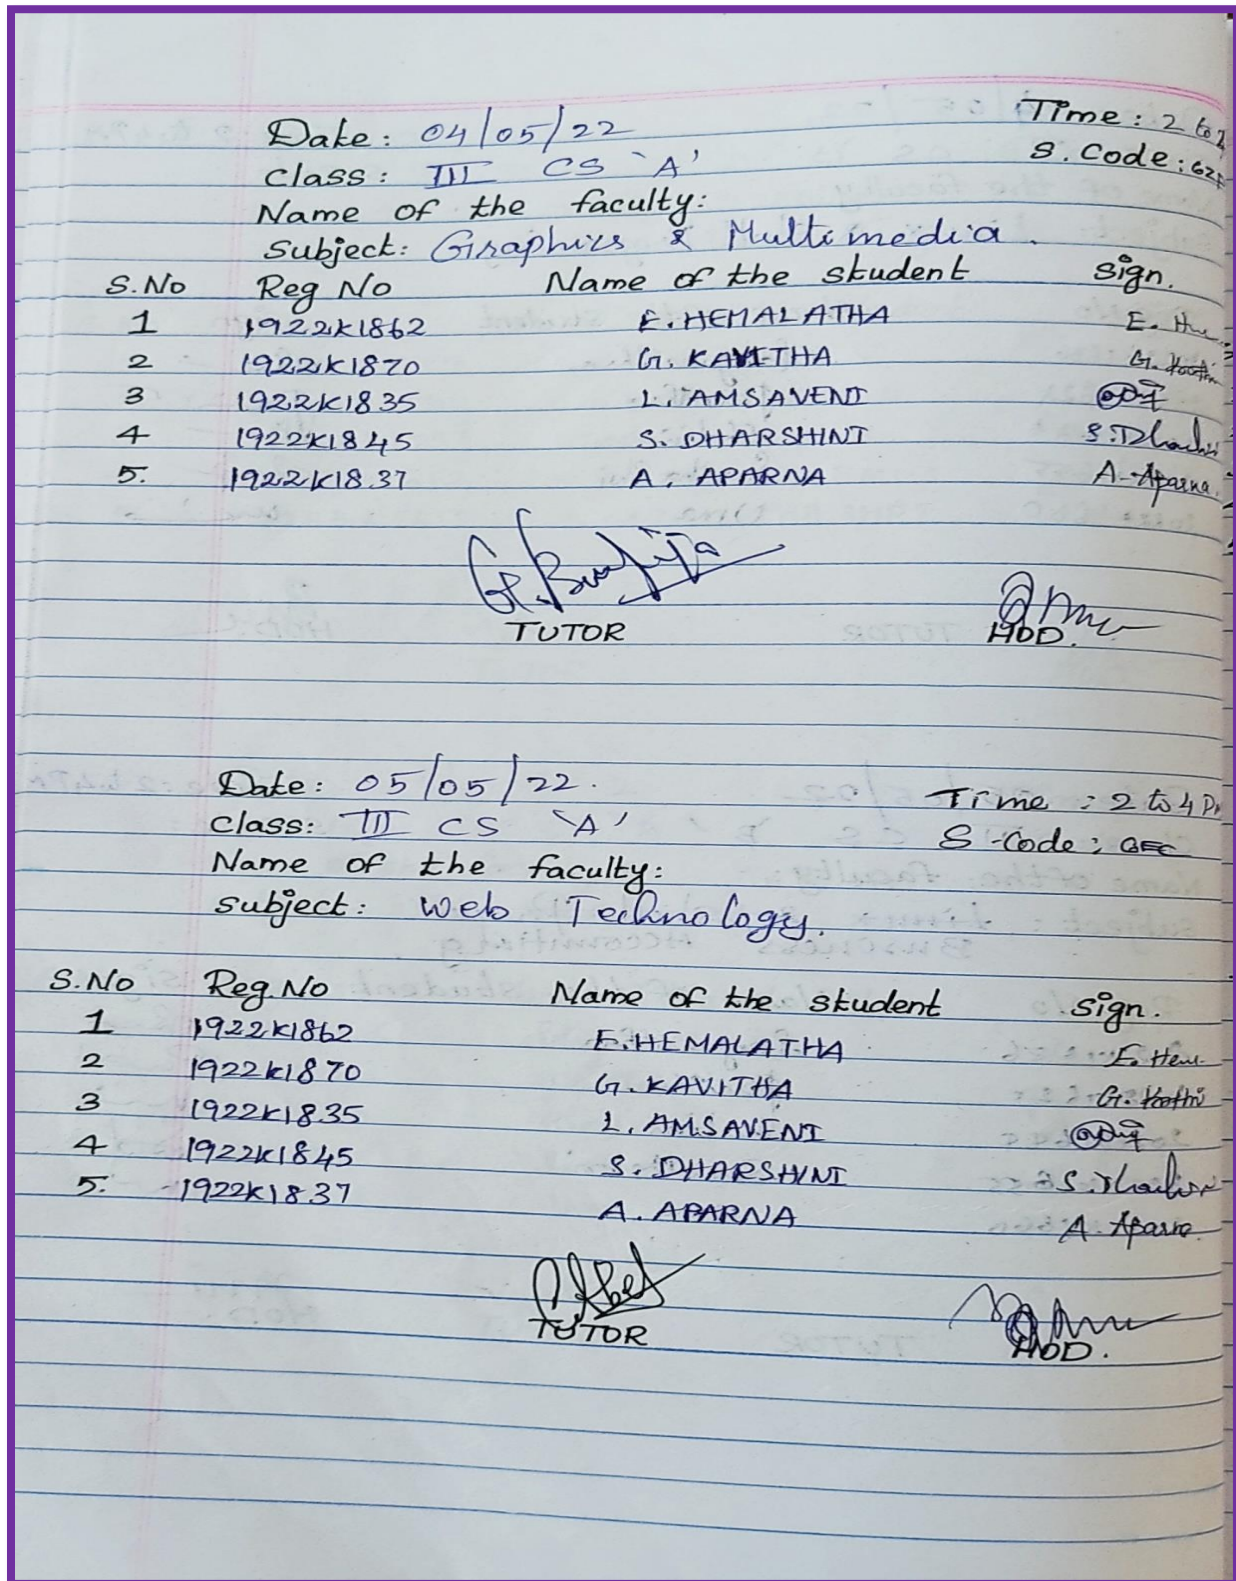 Date: 04/05/22 Time: 2 to
Class: III CS 'A' S. Code:
Name of the faculty:
Subject: Graphics & Multimedia.
S.No Reg No Name of the student Sign.
1 1922K1862 E. HEMALATHA E.
2 1922K1870 G. KAVITHA G.
3 1922K1835 L. AMSAVENI
4 1922K1845 S. DHARSHINI S.
5. 1922K1837 A. APARNA A. Aparna
TUTOR HOD.
Date: 05/05/22. Time: 2 to 4
Class: III CS 'A' S-Code:
Name of the faculty:
Subject: Web Technology.
S.No Reg.No Name of the student Sign.
1 1922K1862 E. HEMALATHA E.
2 1922K1870 G. KAVITHA G.
3 1922K1835 L. AMSAVENI
4 1922K1845 S. DHARSHINI S.
5. 1922K1837 A. APARNA A. Aparna
TUTOR HOD.